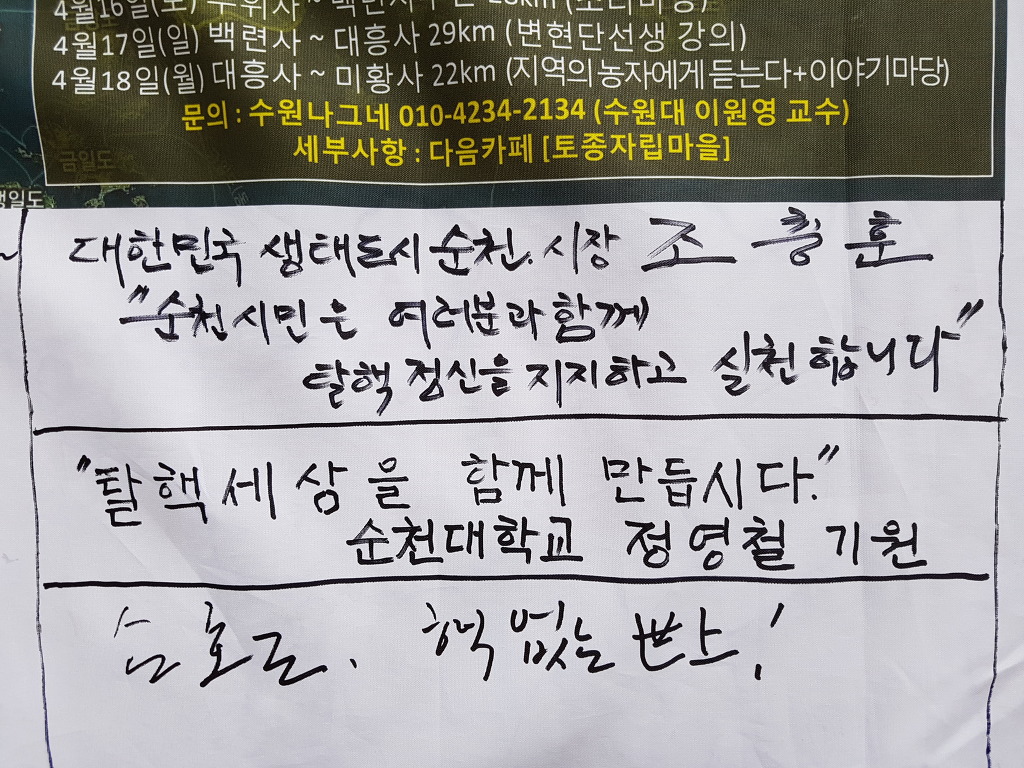 4월16일(토) 수위사 ~ 백련사 28km (소리마당)
4월17일(일) 백련사 ~ 대흥사 29km (변현단선생 강의)
4월18일(월) 대흥사 ~ 미황사 22km (지역의 농자에게 듣는다+이야기마당)
문의 : 수원나그네 010-4234-2134 (수원대 이원영 교수)
세부사항 : 다음카페 [토종자립마을]
금일도
생일도
대한민국 생태도시 순천. 시장 조충훈
"순천시민은 여러분과 함께
탈핵 정신을 지지하고 실천합니다"
"탈핵세상을 함께 만듭시다."
순천대학교 정영철 기원
핵 없는